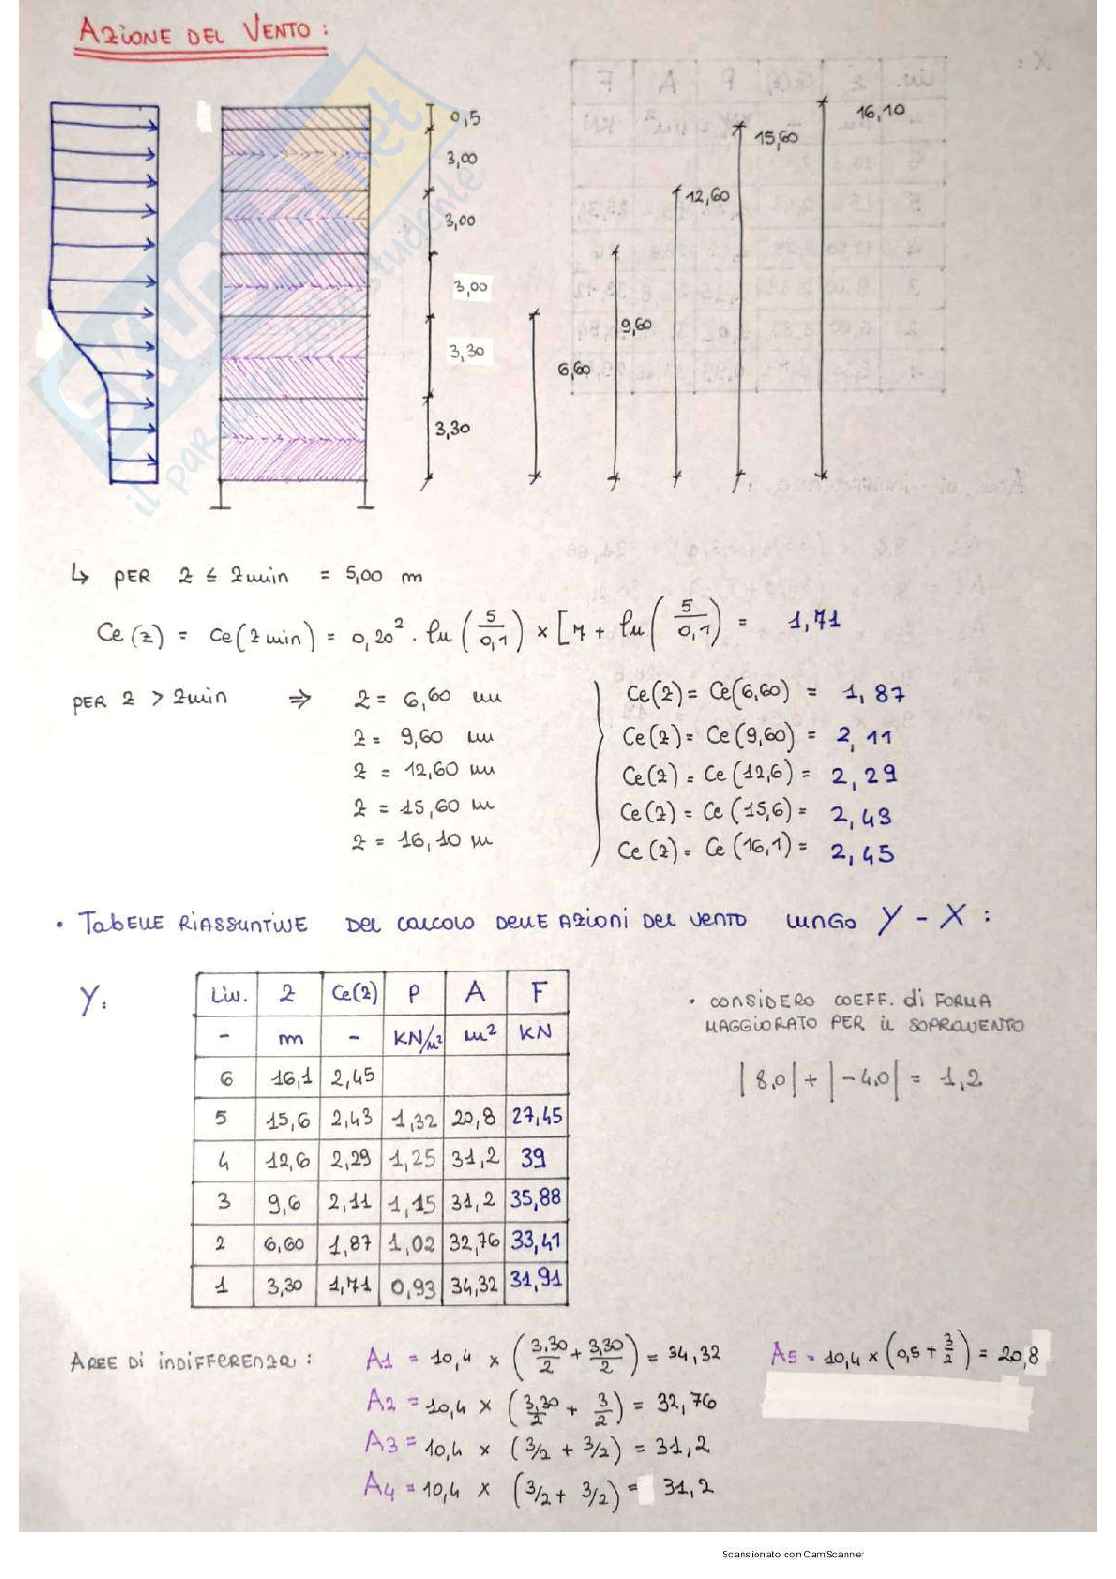 AZIONE DEL VENTO :
0,5
3,00
3,00
3,00
3,30
3,30
6,60
9,60
12,60
15,60
16,10
il paradiso dello studente
↳ PER z ≤ zmin = 5,00 m
Ce (z) = Ce(zmin) = 0,20² · ln (5/0,1) × [7 + ln (5/0,1) = 1,71
PER z > zmin ⇒ z = 6,60 m Ce(z) = Ce(6,60) = 1,87
z = 9,60 m Ce(z) = Ce(9,60) = 2,11
z = 12,60 m Ce(z) = Ce(12,6) = 2,29
z = 15,60 m Ce(z) = Ce(15,6) = 2,43
z = 16,10 m Ce(z) = Ce(16,1) = 2,45
• TABELLE RIASSUNTIVE DEL CALCOLO DELLE AZIONI DEL VENTO LUNGO Y - X :
Y:
Liv. z Ce(z) P A F
- m - KN/m² m² KN
6 16,1 2,45
5 15,6 2,43 1,32 20,8 27,45
4 12,6 2,29 1,25 31,2 39
3 9,6 2,11 1,15 31,2 35,88
2 6,60 1,87 1,02 32,76 33,41
1 3,30 1,71 0,93 34,32 31,91
• CONSIDERO COEFF. di FORMA
MAGGIORATO PER IL SOPRAVENTO
|8,0| + |-4,0| = 1,2
AREE DI INDIFFERENZA : A1 = 10,4 × (3,30/2 + 3,30/2) = 34,32 A5 = 10,4 × (0,5 + 3/2) = 20,8
A2 = 10,4 × (3,30/2 + 3/2) = 32,76
A3 = 10,4 × (3/2 + 3/2) = 31,2
A4 = 10,4 × (3/2 + 3/2) = 31,2
Scansionato con CamScanner